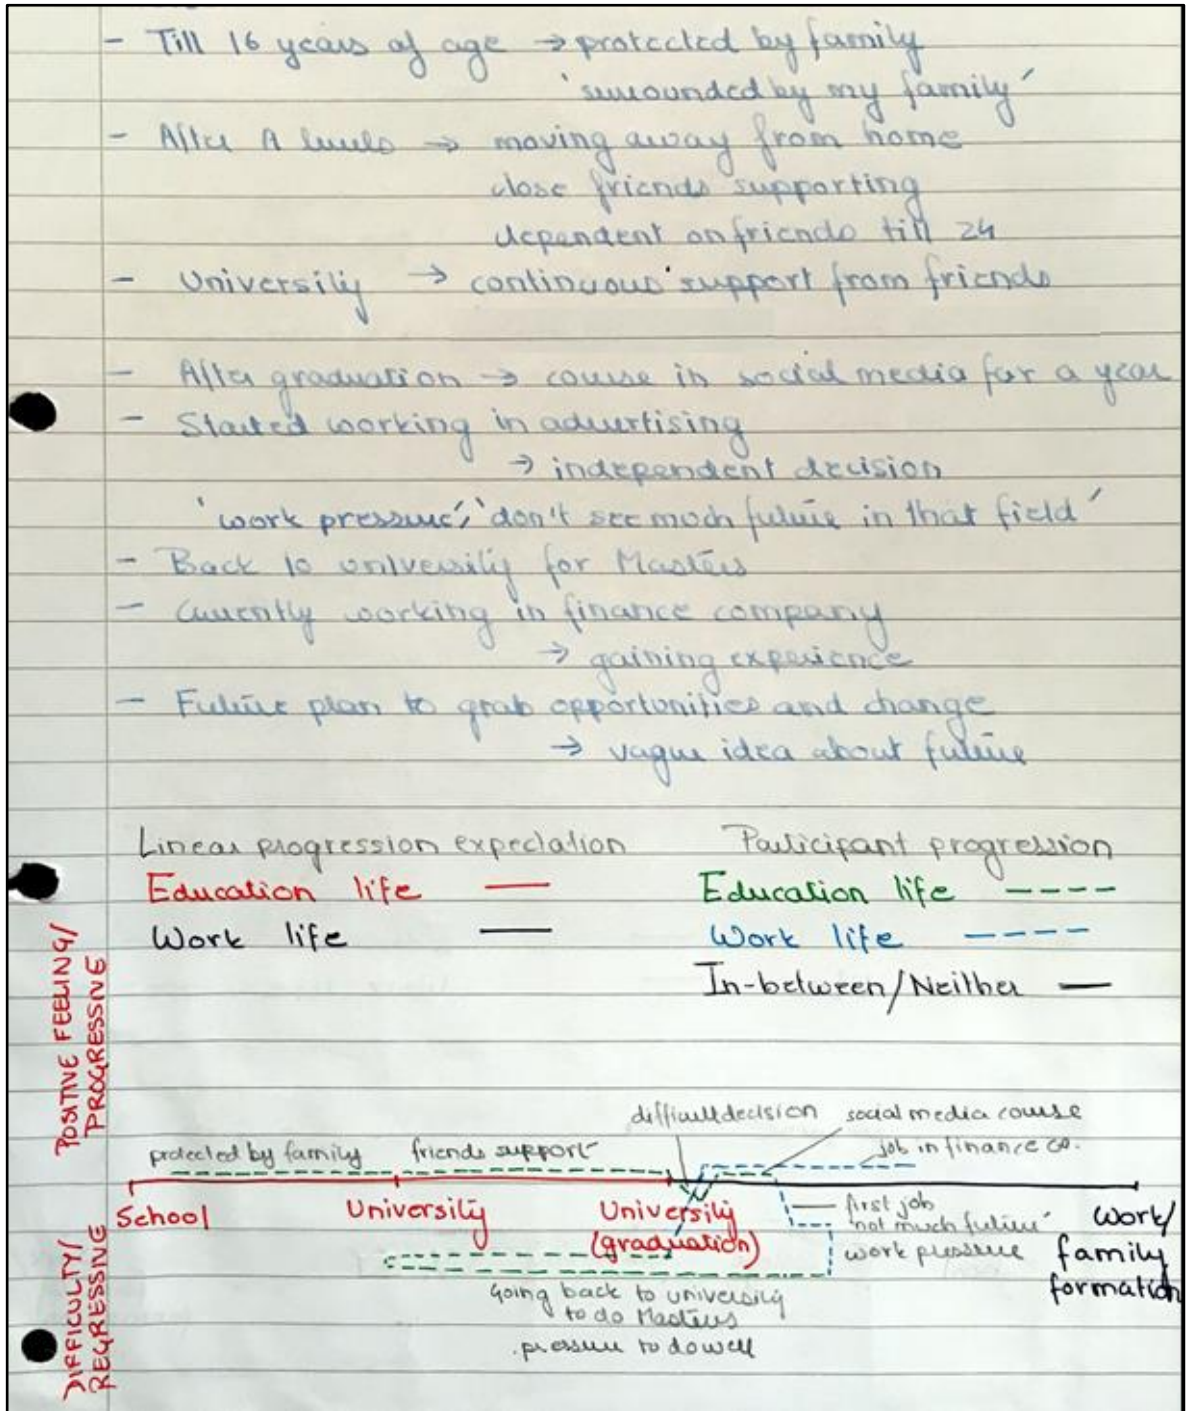 - Till 16 years of age → protected by family
'surrounded by my family'
- After A levels → moving away from home
close friends supporting
dependent on friends till 24
- University → continuous support from friends
- After graduation → course in social media for a year
- Started working in advertising
→ independent decision
'work pressure', 'don't see much future in that field'
- Back to university for Masters
- Currently working in finance company
→ gaining experience
- Future plan to grab opportunities and change
→ vague idea about future
Linear progression expectation
Education life
Work life
Participant progression
Education life
Work life
In-between/Neither
POSITIVE FEELING/
PROGRESSIVE
DIFFICULTY/
REGRESSIVE
difficult decision
social media course
protected by family
friends support
job in finance co.
School
University
University
(graduation)
first job
not much future
work pressure
Work/
family
formation
Going back to university
to do Masters
pressure to do well